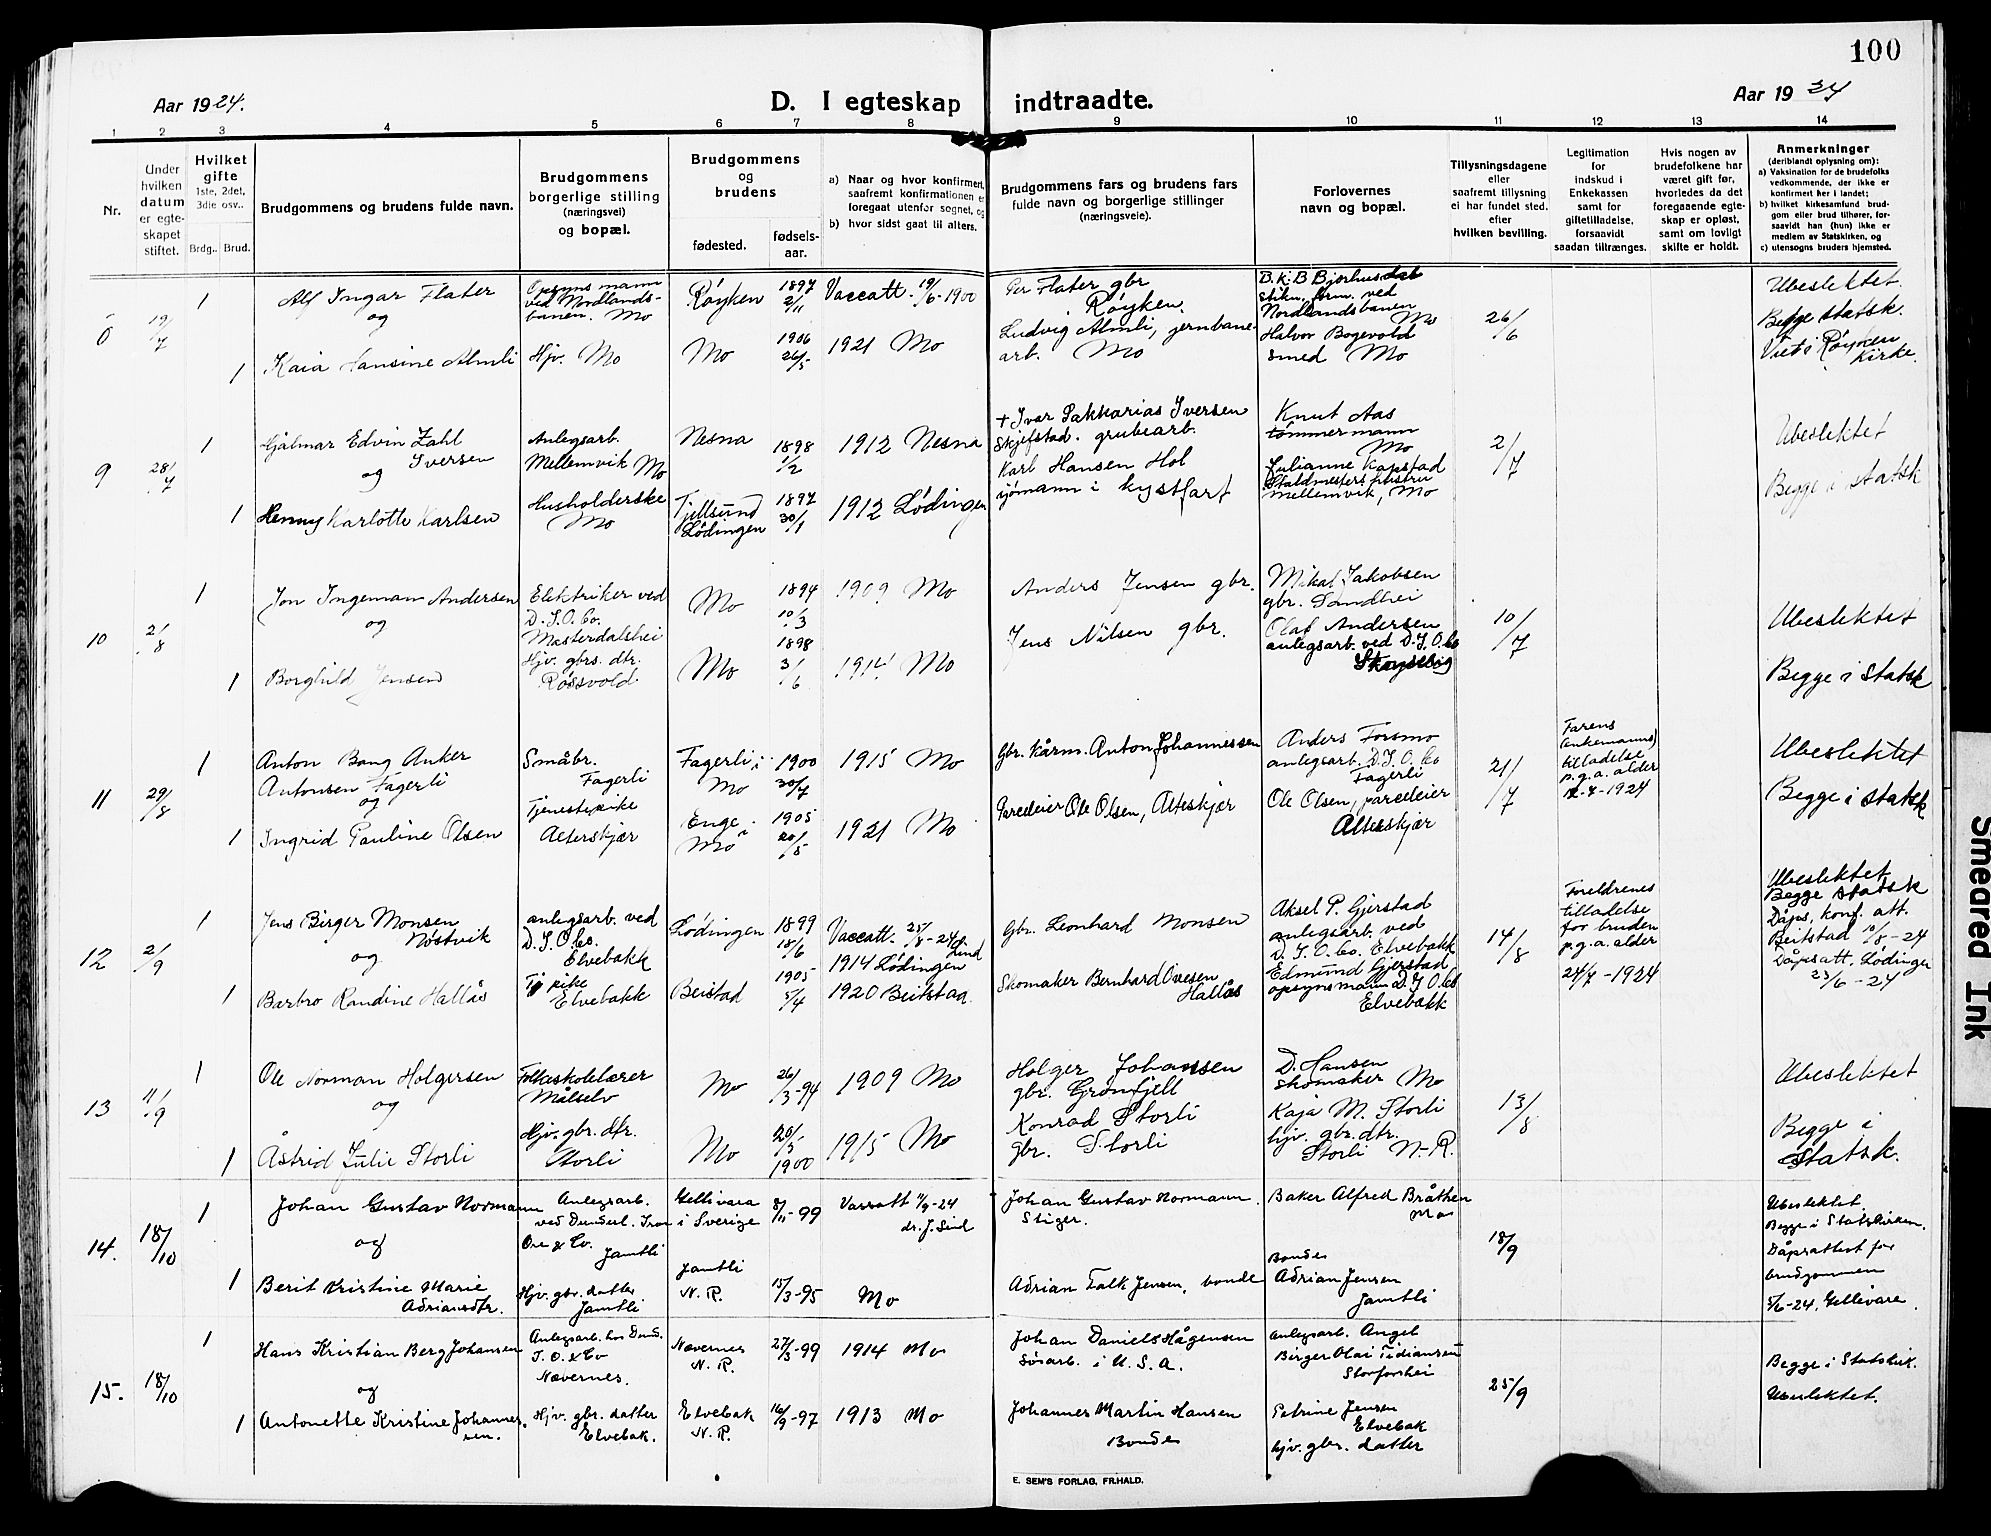 100
Aar 1924.
D. I egteskap indtraadte.
Aar 1924
1 2 3 4 5 6 7 8 9 10 11 12 13 14
Nr.
Under hvilken datum er egteskapet stiftet.
Hvilket gifte
1ste, 2det, 3die osv..
Brdg.. Brud.
Brudgommens og brudens fulde navn.
Brudgommens borgerlige stilling (næringsvei) og bopæl.
Brudgommens og brudens
fødested.
fødsels-aar.
a) Naar og hvor konfirmert, saafremt konfirmationen er foregaat utenfor sognet, og
b) hvor sidst gaat til alters.
Brudgommens fars og brudens fars fulde navn og borgerlige stillinger (næringsveie).
Forlovernes navn og bopæl.
Tillysningsdagene eller saafremt tillysning ei har fundet sted. efter hvilken bevilling.
Legitimation for indskud i Enkekassen samt for giftetilladelse, forsaavidt saadan tiltrænges.
Hvis nogen av brudefolkene har været gift før, hvorledes da det foregaaende egteskap er opløst, samt om lovligt skifte er holdt.
Anmerkninger
(deriblandt oplysning om):
a) Vaksination for de brudefolks vedkommende, der ikke er konfirmert her i landet;
b) hvilket kirkesamfund brudgom eller brud tilhører, forsaavidt han (hun) ikke er medlem av Statskirken, og
c) utensogns bruders hjemsted.
8 19/7
1 Alf Ingar Flater
og
Opsynsmann ved Nordlandsbanen. Mo
Røyken
1897 2/11
Vaccatt. 19/6-1900
Per Flater gbr Røyken.
B.K.B Bjørhusdal stikn. form. ved Nordlandsbanen Mo
26/6
Ubeslektet.
1 Kaia Hansine Almli
Hjv. Mo
Mo
1906 26/5
1921 Mo
Ludvig Almli, jernbanearb. Mo
Halvor Bogevold smed Mo
Begge statsk.
Viet i Røyken Kirke.
9 28/7
1 Hjalmar Edvin Zahl Iversen
og
Anlegsarb. Mellemvik Mo
Nesna
1898 1/2
1912 Nesna
+ Ivar Sakkarias Iversen Skjefstad. grubearb.
Knut Aas tømmermann Mo
2/7
Ubeslektet
1 Henny Karlotte Karlsen
Husholderske Mo
Tjellsund Lødingen
1897 30/1
1912 Lødingen
Karl Hansen Hol sjømann i kystfart
Julianne Kapstad Staldmesters hustru Mellemvik, Mo
Begge i statsk
10 2/8
1 Jon Ingeman Andersen
og
Elektriker ved D.I.O.Co. Mæsterdalshei
Mo
1894 10/3
1909 Mo
Anders Jensen gbr.
Mikal Jakobsen gbr. Sandhei
10/7
Ubeslektet
1 Borghild Jensen
Hjv. gbrs. dtr. Røssvold
Mo
1898 3/6
1914 Mo
Jens Nilsen gbr.
Olaf Andersen anlegsarb. ved D.I.O.Co
Begge i Statsk
11 29/8
1 Anton Bang Anker Antonsen Fagerli
og
Småbr. Fagerli
Fagerli i Mo
1900 30/7
1915 Mo
Gbr. Kårm. Anton Johannessen
Anders Forsmo anlegsarb. D.I.O.Co Fagerli
21/7
Farens (enkemanns) tilladelse p.g.a. alder -7-1924
Ubeslektet
1 Ingrid Pauline Olsen
Tjenestepike Alterskjær
Enge i Mo
1905 20/5
1921 Mo
Parceleier Ole Olsen, Alteskjær
Ole Olsen, parceleier Alterskjær
Begge i statsk
12 2/9
1 Jens Birger Monsen Nøstvik
og
anlegsarb. ved D.I.O.Co. Elvebakk
Lødingen
1899 18/6
Vaccatt. 25/8-24 Lind
1914 Lødingen
Gbr. Leonhard Monsen
Aksel P. Gjerstad anlegsarb. ved D.I.O.Co. Elvebakk
14/8
Foreldrenes tilladelse for bruden p.g.a. alder 24/7-1924
Ubeslektet
Begge Statsk
1 Barbro Randine Hallås
Tj pike Elvebakk
Beistad
1905 5/4
1920 Beitstad
Skomaker Bernhard Ovesen Hallås
Edmund Gjerstad opsynsmann D.I.O.Co Elvebakk
Dåps, konf. att. Beitstad 10/8-24
Dåpsatt. Lødingen 23/6-24
13 11/9
1 Ole Norman Holgersen
og
Folkeskolelærer Målselv
Mo
26/3-94
1909 Mo
Holger Johansen gbr. Grønfjell
D. Hansen skomaker Mo
13/8
Ubeslektet
1 Åstrid Julie Storli
Hjv. gbr. dtr. Storli
Mo
20/5 1900
1915 Mo
Konrad Storli gbr. Storli
Kaja M. Storli hjv. gbr. dtr. Storli N-R.
Begge i Statsk.
14. 18/10
1 Johan Gustav Normann
og
Anlegsarb. ved Dunderl. Iron Ore & Co. Jamtli
Gellivara i Sverige
8/11-99
Vaxxatt 11/9-24 dr. J. Lind
Johan Gustav Normann. Stiger.
Baker Alfred Bråthen Mo
18/9
Ubeslektet.
Begge i Statskirken.
1 Berit Kristine Marie Adriansdtr.
Hjv. gbr. datter Jamtli
Jamtli N.R.
15/3-95
Mo
Adrian Falk Jensen, bonde
Bonde Adrian Jensen Jamtli
Dåpsattest for brudgommen 5/6-24, Gellivare.
15. 18/10
1 Hans Kristian Berg Johansen
og
Anlegsarb. hos Dund. I.O. & Co Nævernes.
Nævernes N.R.
27/3-99
1914 Mo
Johan Daniels Hågensen Sörarb. i U.S.A.
Anlegsarb. Angel Birger Olai Tidiansen Storforshei
25/9
Begge i Statskk.
1 Antonette Kristine Johannessen.
Hjv. gbr. datter Elvebak.
Elvebak N.R.
16/9-97
1913 Mo
Johannes Martin Hansen Bonde
Petrine Jensen Elvebak hjv. gbr. datter
Ubeslektet.
E. SEM'S FORLAG, FR.HALD.
Smeared Ink